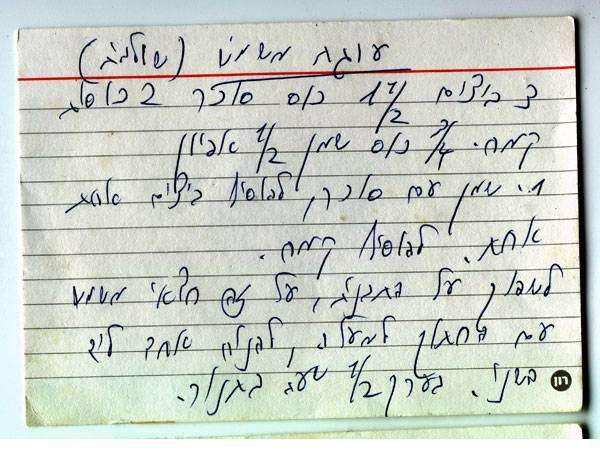 עוגת משמש (שולמית)
3 ביצים 1 1/2 כוס סוכר 2 כוסות
קמח. 3/4 כוס שמן 1/2
1. שמן עם סוכר, להוסיף ביצים אחת
אחת. להוסיף קמח.
לשפוך על התבנית, על זה חצאי משמש
עם החתוך למעלה, להניח אחד ליד
השני. בערך 1/2 שעה בתנור.